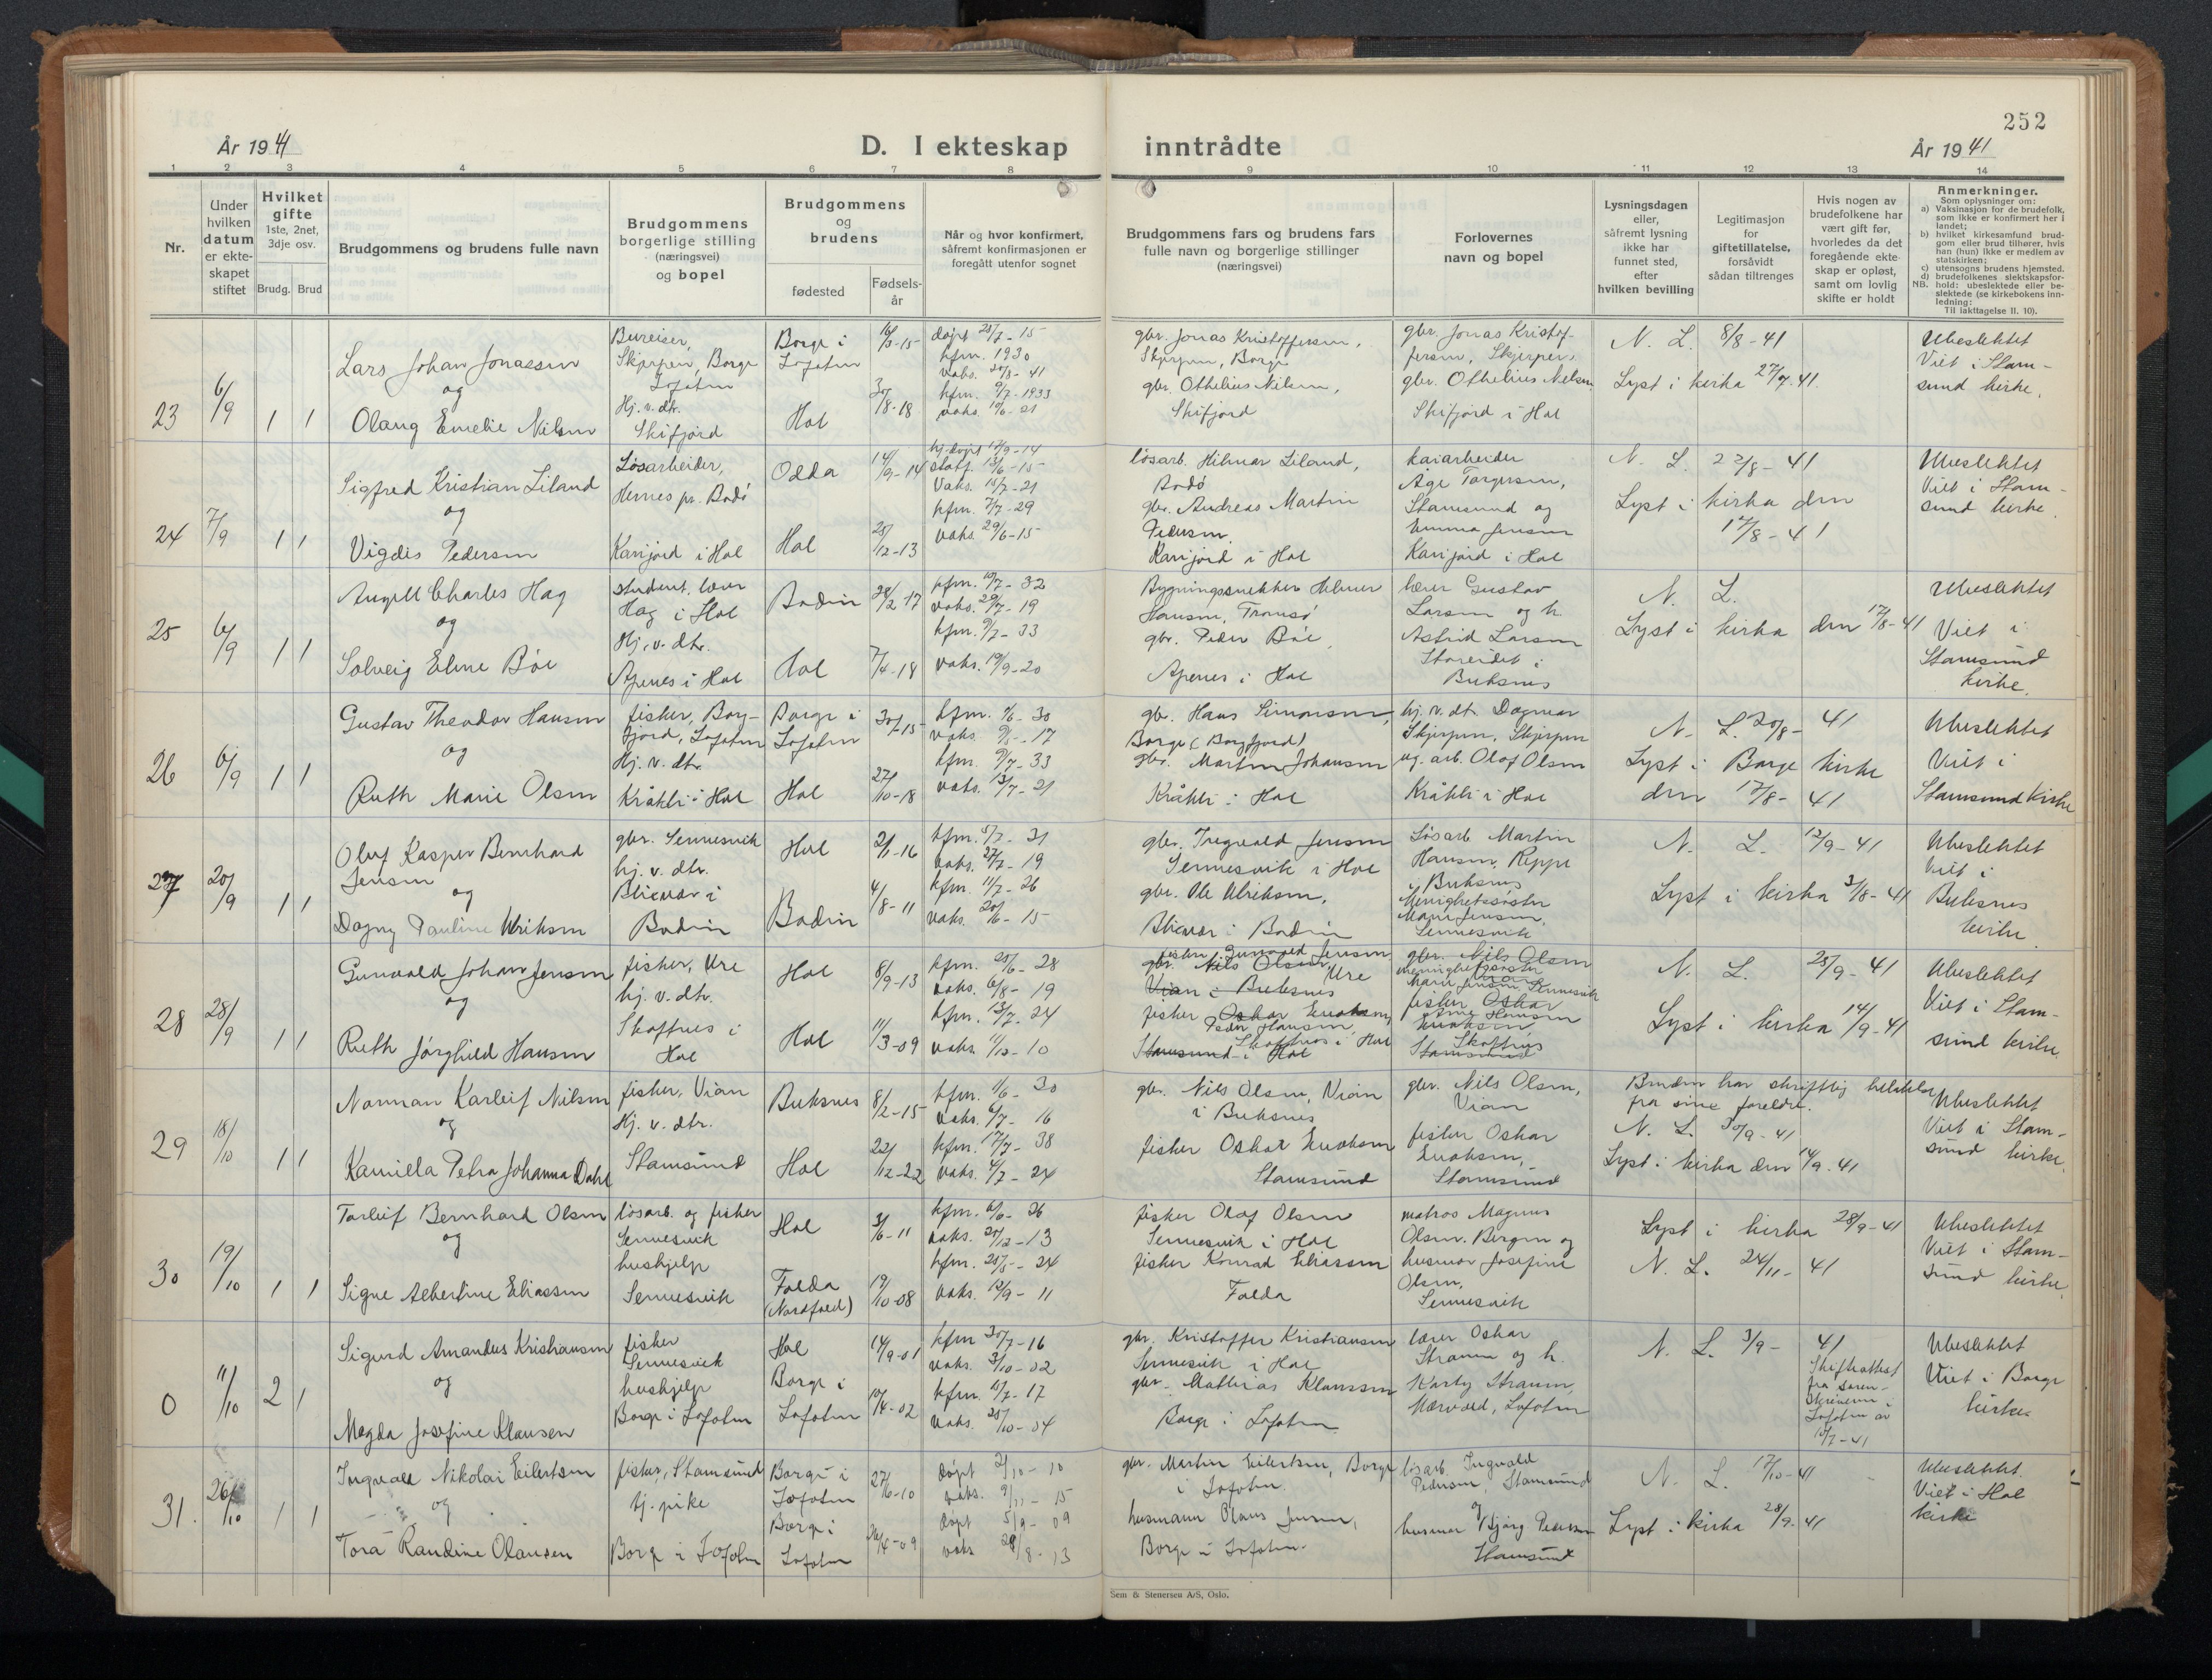 252
År 1941
D. I ekteskap inntrådte
År 1941
1 2 3 4 5 6 7 8 9 10 11 12 13 14
Nr.
Under
hvilken
datum
er ekte-
skapet
stiftet
Hvilket
gifte
1ste, 2net,
3dje osv.
Brudg. Brud
Brudgommens og brudens fulle navn
Brudgommens
borgerlige stilling
(næringsvei)
og bopel
Brudgommens
og
brudens
fødested
Fødsels-
år
Når og hvor konfirmert,
såfremt konfirmasjonen er
foregått utenfor sognet
Brudgommens fars og brudens fars
fulle navn og borgerlige stillinger
(næringsvei)
Forlovernes
navn og bopel
Lysningsdagen
eller,
såfremt lysning
ikke har
funnet sted,
efter
hvilken bevilling
Legitimasjon
for
giftetillatelse,
forsåvidt
sådan tiltrenges
Hvis nogen av
brudefolkene har
vært gift før,
hvorledes da det
foregående ekte-
skap er opløst,
samt om lovlig
skifte er holdt
Anmerkninger.
Som oplysninger om:
a) Vaksinasjon for de brudefolk,
som ikke er konfirmert her i
landet;
b) hvilket kirkesamfund brud-
gom eller brud tilhører, hvis
han (hun) ikke er medlem av
statskirken;
c) utensogns brudens hjemsted.
d) brudefolkenes slektskapsfor-
NB. hold: ubeslektede eller be-
slektede (se kirkebokens inn-
ledning:
Til iakttagelse II. 10).
23
6/9
1 1
Lars Johan Jonassen
og
Olaug Emelie Nilsen
Bureiser,
Skjerpen, Borge
Lofoten
Hj. v. dtr.
Skifjord
Borge i
Lofoten
Hol
16/3-15
30/8-18
døpt 25/7-15
kfm. 1930
vaks. 25/8-41
kfm. 9/7-1933
vaks. 19/6-21
gbr. Jonas Kristoffersen,
Skjerpen, Borge
gbr. Othelius Nilsen,
Skifjord
gbr. Jonas Kristof-
fersen, Skjerpen,
gbr. Othelius Nilsen
Skifjord i Hol
N. L. 8/8-41
Lyst i kirka 27/7-41.
Ubeslektet
Viet i Stam-
sund kirke.
24
7/9
1 1
Sigfred Kristian Liland
og
Vigdis Pedersen
Løsarbeider,
Hernes pr. Bodø
Karijord i Hol
Odda
Hol
14/9-14
25/12-13
hj.døpt 17/9-14
stadf. 13/6-15
Vaks. 15/7-21
kfm. 7/7-29
vaks. 29/6-15
løsarb. Hilmar Liland,
Bodø
gbr. Andreas Martin
Pedersen.
Karijord i Hol
kaiarbeider
Åge Torgersen,
Stamsund og
Emma Jensen
Karijord i Hol
N. L. 22/8-41
Lyst i kirka den
17/8-41
Ubeslektet
Viet i Stam-
sund kirke.
25
6/9
1 1
Angell Charles Hag
og
Solveig Eline Bøe
student, lærer
Hag i Hol
Hj. v. dtr.
Apenes i Hol
Bodin
Hol
28/2-17
7/4-18
kfm. 10/7-32
vaks. 29/7-19
kfm. 9/7-33
vaks. 19/9-20
Bygningssnekker Helmer
Hansen, Tromsø
gbr. Peder Bøe,
Apenes i Hol
lærer Gustav
Larsen og h.
Astrid Larsen
Storeidet i
Buksnes
N. L.
Lyst i kirka den 17/8-41
Ubeslektet
Viet i
Stamsund
kirke.
26
6/9
1 1
Gustav Theodor Hansen
og
Ruth Marie Olsen
fisker, Borg-
fjord, Lofoten
Hj. v. dtr.
Kråkli i Hol
Borge i
Lofoten
Hol
30/1-15
27/10-18
kfm. 9/6-30
vaks. 9/5-17
kfm. 9/7-33
vaks. 13/7-21
gbr. Hans Simonsen,
Borge (Borgfjord)
gbr. Martin Johansen
Kråkli i Hol
hj. v. dtr. Dagmar
Skjerpen, Skjerpen
og arb. Olaf Olsen
Kråkli i Hol
N. L. 20/8-41
Lyst i Borge kirke
den 17/8-41
Ubeslektet
Viet i
Stamsund kirke
27
20/9
1 1
Oluf Kasper Bernhard
Jensen
og
Dagny Pauline Ulriksen
gbr. Sennesvik
hj. v. dtr.
Blixvær i
Bodin
Hol
Bodin
2/1-16
4/8-11
kfm. 5/7-31
vaks. 27/7-19
kfm. 11/7-26
vaks. 20/6-15
gbr. Ingvald Jensen
Sennesvik i Hol
gbr. Ole Ulriksen,
Blixvær i Bodin
Løsarb. Martin
Hansen, Reppe
Buksnes
Menighetssøster
Marie Jensen,
Sennesvik
N. L. 12/9-41
Lyst i kirka 3/8-41
Ubeslektet
Viet i
Buksnes
kirke.
28
28/9
1 1
Gunvald Johan Jensen
og
Ruth Jørghild Hansen
fisker, Ure
hj. v. dtr.
Skaftnes i
Hol
Hol
Hol
8/9-13
11/3-09
kfm. 25/6-28
vaks. 6/8-19
kfm. 13/7-24
vaks. 11/12-10
fisker Gunvald Jensen
gbr. Nils Olsen, Ure
Vian i Buksnes
fisker Oskar Enoksen
Peder Hansen,
Skaftnes i Hol
Stamsund i Hol
gbr. Nils Olsen
menighetssøster
Marie Jensen, Sennesvik
fisker Oskar
Hansen
Enoksen
Skaftnes
Stamsund
N. L. 25/9-41
Lyst i kirka 14/9-41
Ubeslektet
Viet i Stam-
sund kirke.
29
18/10
1 1
Norman Karleif Nilsen
og
Kamilla Petra Johanna Dahl
fisker, Vian
Hj. v. dtr.
Stamsund
Buksnes
Hol
8/2-15
22/12-22
kfm. 1/6-30
vaks. 6/7-16
kfm. 17/7-38
vaks. 4/7-24
gbr. Nils Olsen, Vian
i Buksnes
fisker Oskar Enoksen
Stamsund
gbr. Nils Olsen,
Vian
fisker Oskar
Enoksen,
Stamsund
Bruden har skriftlig tillatelse
fra sine foreldre.
N. L. 30/9-41
Lyst i kirka den 14/9-41
Ubeslektet
Viet i Stam-
sund kirke.
30
19/10
1 1
Torleif Bernhard Olsen
og
Signe Albertine Eliassen
løsarb. og fisker
Sennesvik
hushjelp
Sennesvik
Hol
Folda
(Nordfold)
3/6-11
19/10-08
kfm. 6/6-26
vaks. 20/12-13
kfm. 25/5-24
vaks. 12/9-11
fisker Olaf Olsen
Sennesvik i Hol
fisker Konrad Eliassen
Folda
matros Magnus
Olsen, Bergen og
husmor Josefine
Olsen,
Sennesvik
Lyst i kirka 28/9-41
N. L. 24/11-41
Ubeslektet
Viet i Stam-
sund kirke.
0
11/10
2 1
Sigurd Amandus Kristiansen
og
Magda Josefine Klausen
fisker
Sennesvik
hushjelp
Borge i Lofoten
Hol
Borge i
Lofoten
14/9-01
10/4-02
kfm 30/7-16
vaks. 3/10-02
kfm. 15/7-17
vaks. 25/10-04
gbr. Kristoffer Kristiansen
Sennesvik i Hol
gbr. Mathias Klaussen
Borge i Lofoten
lærer Oskar
Straum og h.
Harty Straum,
Mærvold, Lofoten
N. L. 3/9-41
Skifteattest
fra soren-
skriveren i
Lofoten av
15/7-41
Ubeslektet
Viet i Borge
kirke
31.
26/10
1 1
Ingvald Nikolai Eilertsen
og
Tora Randine Olausen
fisker, Stamsund
tj. pike
Borge i Lofoten
Borge i
Lofoten
Borge i
Lofoten
27/6-10
26/4-09
døpt 2/10-10
vaks. 9/11-15
døpt 5/9-09
vaks 28/8-13
gbr. Martin Eilertsen, Borge
i Lofoten.
husmann Olaus Jensen,
Borge i Lofoten.
løsarb. Ingvald
Pedersen, Stamsund
og
husmor Bjørg Pedersen
Stamsund
N. L. 17/10-41
Lyst i kirka 28/9-41
Ubeslektet.
Viet i Hol
kirke
Sem & Stenersen A/S, Oslo.